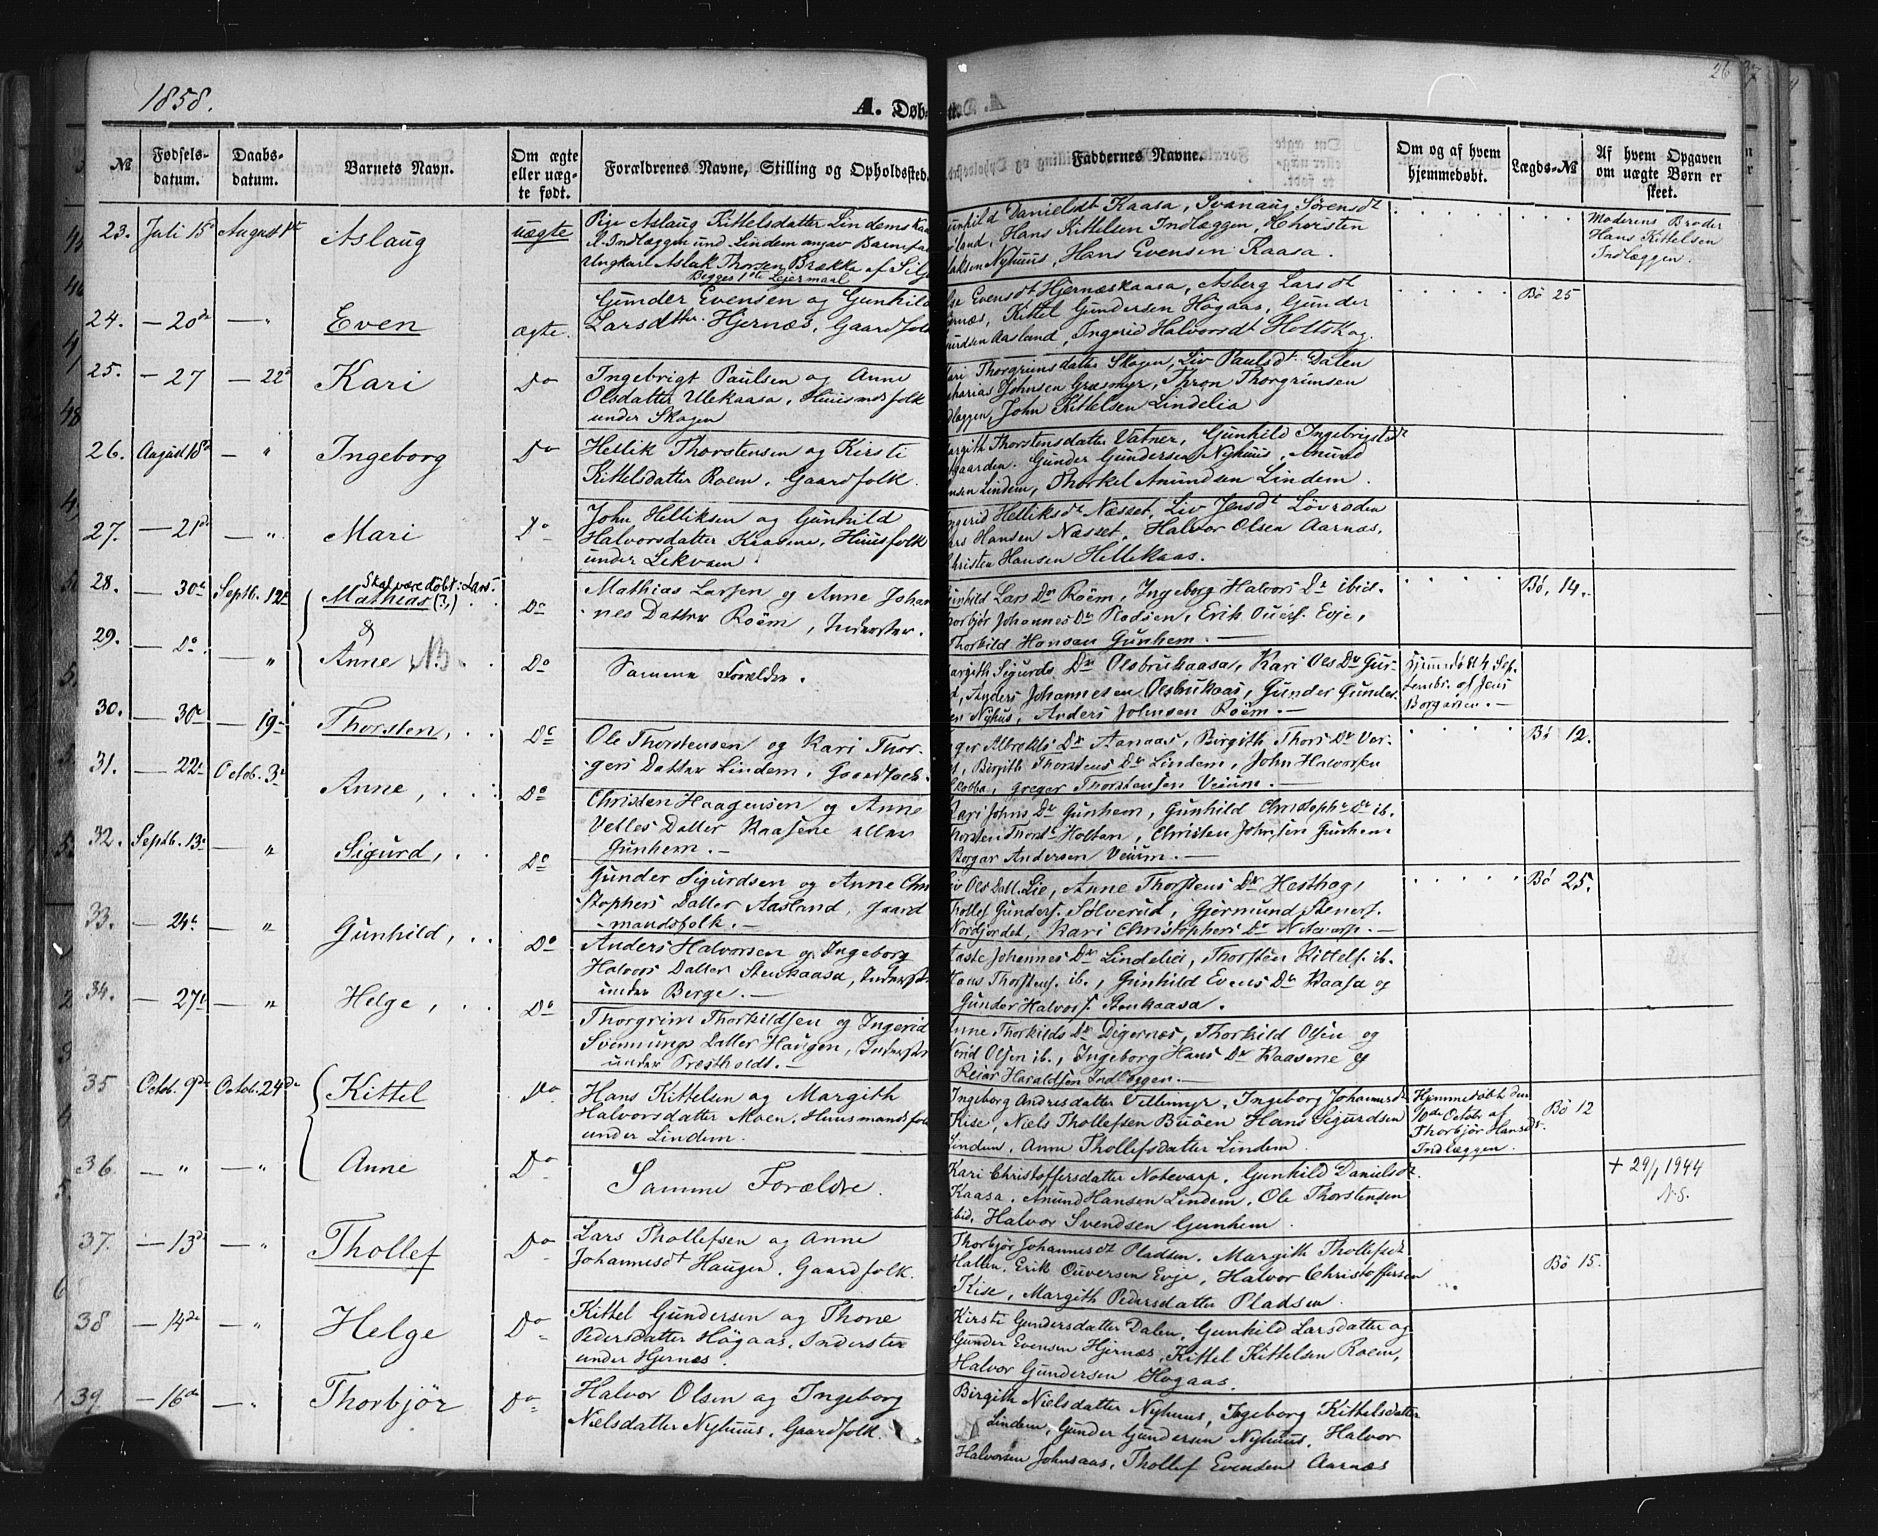 1858.
A. Døb-
26
№
Fødsels-datum.
Daabs-datum.
Barnets Navn.
Om ægte eller uægte født.
Forældrenes Navne, Stilling og Opholdssted.
Faddernes Navne.
Om og af hvem hjemmedøbt.
Lægds-№
Af hvem Opgaven om uægte Børn er skeet.
23. Juli 15de August 1ste Aslaug uægte
Pige Aslaug Kittelsdatter Lindemskaa
Indlæggen und. Lindem angav Barnefa
Ungkarl Aslak Thorsen Brækka af Silj
Begges 1ste Lejermaal
Danieldt Kaasa, Svanaug Sørensdt
Hans Kittelsen Indlæggen, Christen
Nyhuus, Hans Evensen Kaasa.
Moderens Broder
Hans Kittelsen
Indlæggen.
24. — 20de — " Even ægte.
Gunder Evensen og Gunhild
Larsdtter Hjernæs, Gaardfolk
Evensdt Hjernæskaasa, Asberg Larsdt
Kittel Gundersen Høgaas, Gunder
Aasland, Ingerid Halvorsdt Holtskog
Bø 25
25. — 27 — 22de Kari Do
Ingebrigt Paulsen og Anne
Olsdatter Ulekaasa, Huusmdsfolk
under Skogen
Thorgrimsdatter Skogen, Liv Paulsdt Dalen
Johnsen Græsmyr, Thron Thorgrimsen
John Kittelsen Lindelia
26. August 18de — " Ingeborg Do
Hellik Thorstensen og Kirsti
Kittelsdatter Roem, Gaardfolk.
Thorstensdatter Vatner, Gunhild Ingebrigtsdt
Gunder Gundersen Nyhuus, Anund
Lindem, Thorkel Anundsen Lindem.
27. — 21de — " Mari Do
John Helliksen og Gunhild
Halvorsdatter Kaasene, Huusfolk
under Lekvam.
Helliksdt Næsset, Liv Jensdt Løvroden
Hansen Næsset, Halvor Olsen Aarnæs,
Christen Hansen Hellekaas.
28. — 30te Septb. 12te Skal være døbt: Lars
Mathias (?) Do
&
Mathias Larsen og Anne Johan
nes Datter Röem, Inderster.
Lars Dr Röem, Ingeborg Halvors Dr ibid.
Johannes Dr Pladsen, Erik Ouers. Evje,
Thorkild Hansen Gunhem. —
Bø, 14.
29. — Do. — " Anne NB. Do
Samme Forældre.
Sigurds Dr Olsbrukaasa, Kari Ols Dr Gur-
Anders Johannesen Olsbrukaas, Gunder Gunder
Nyhus, Anders Johnsen Röem. —
Hjemmedøbt 4 Sep-
tembr. af Jens
Borgersen. —
30. — 30te — 19 — Thorsten, Do
Ole Thorstensen og Kari Thor-
gers Datter Lindem, Gaardfolk.
Albrekts Dr Aanaas, Birgith Thors Dr Ver-
Birgith Thorstens Dr Lindem, John Halvorsen
Greger Thorstensen Veium. —
Bö 12.
31. — 22de Octob. 3de Anne, Do
Christen Haagensen og Anne
Velles Datter Kaasene under
Gunhem. —
Kari Johns Dr Gunhem, Gunhild Christoph. Dr ib.
Thorsten Thorst. Holtan, Christen Johnsen Gunhem
Borgar Andersen Veium. —
32. Septb. 13de — " Sigurd, Do
Gunder Sigurdsen og Anne Chri
stophers Datter Aasland, Gaard
mandsfolk. —
Liv Ols Datt. Lie, Anne Thorstens Dr Hesthag,
Thollef Gunders. Sölverud, Gjermund Steners.
Nordjordet, Kari Christophers Dr Notevarp. —
Bö 25.
33. — 24de — " Gunhild, Do
Anders Halvorsen og Ingeborg
Halvors Datter Stenkaasa, Inderster
under Berge. —
Johannes Dr Lindelia, Thorsten Kittels. ib.
Hans Thorstens. ib., Gunhild Evens Dr Kaasa og
Gunder Halvors. Stenkaasa.
34. — 27de — " Helge, Do
Thorgrim Thorkildsen og Ingerid
Svennungs Datter Haugen, Inderster
under Præstholdt. —
Anne Thorkilds Dr Digernæs, Thorkild Olsen og
Olsen ib., Ingeborg Hans Dr Kaasene og
Reiar Haraldsen Indlæggen. —
35 Octob. 9de Octob. 24de Kittel Do
Hans Kittelsen og Margith
Halvorsdatter Moen, Huusmandsfolk
under Lindem.
Ingeborg Andersdatter Tillemyr, Ingeborg Johannesdt
Kise, Niels Thollefsen Buöen, Hans Sigurdsen
Lindem, Anne Thollefsdatter Lindem.
Hjemmedøbt den
10de Octobr af
Thorbjör Hansdt
Indlæggen.
Bø 12
36. — " — " Anne Do
Samme Forældre.
Kari Christoffersdatter Notevarp, Gunhild Danielsdt
Kaasa, Anund Hansen Lindem, Ole Thorstensen
ibid, Halvor Svendsen Gunhem.
+ 29/1 1944
N.S.
37. — 13de — " Thollef Do
Lars Thollefsen og Anne
Johannesdt Haugen, Gaardfolk.
Thorbjør Johannesdt Pladsen, Margith Thollefsdt
Hallen, Erik Ouversen Evje, Halvor Christoffersen
Kise, Margith Pedersdatter Pladsen.
Bø 15.
38 — 14de — " Helge Do
Kittel Gundersen og Thone
Pedersdatter Høgaas, Inderster
under Hjernæs.
Kirste Gundersdatter Dalen, Gunhild Larsdatter og
Gunder Evensen Hjernæs, Kittel Kittelsen Roem,
Halvor Gundersen Høgaas.
39 — 16de — " Thorbjør Do
Halvor Olsen og Ingeborg
Nielsdatter Nyhuus, Gaardfolk.
Birgith Nielsdatter Nyhuus, Ingeborg Kittelsdatter
Lindem, Gunder Gundersen Nyhuus, Halvor
Halvorsen Johnsaas, Thollef Evensen Aarnæs